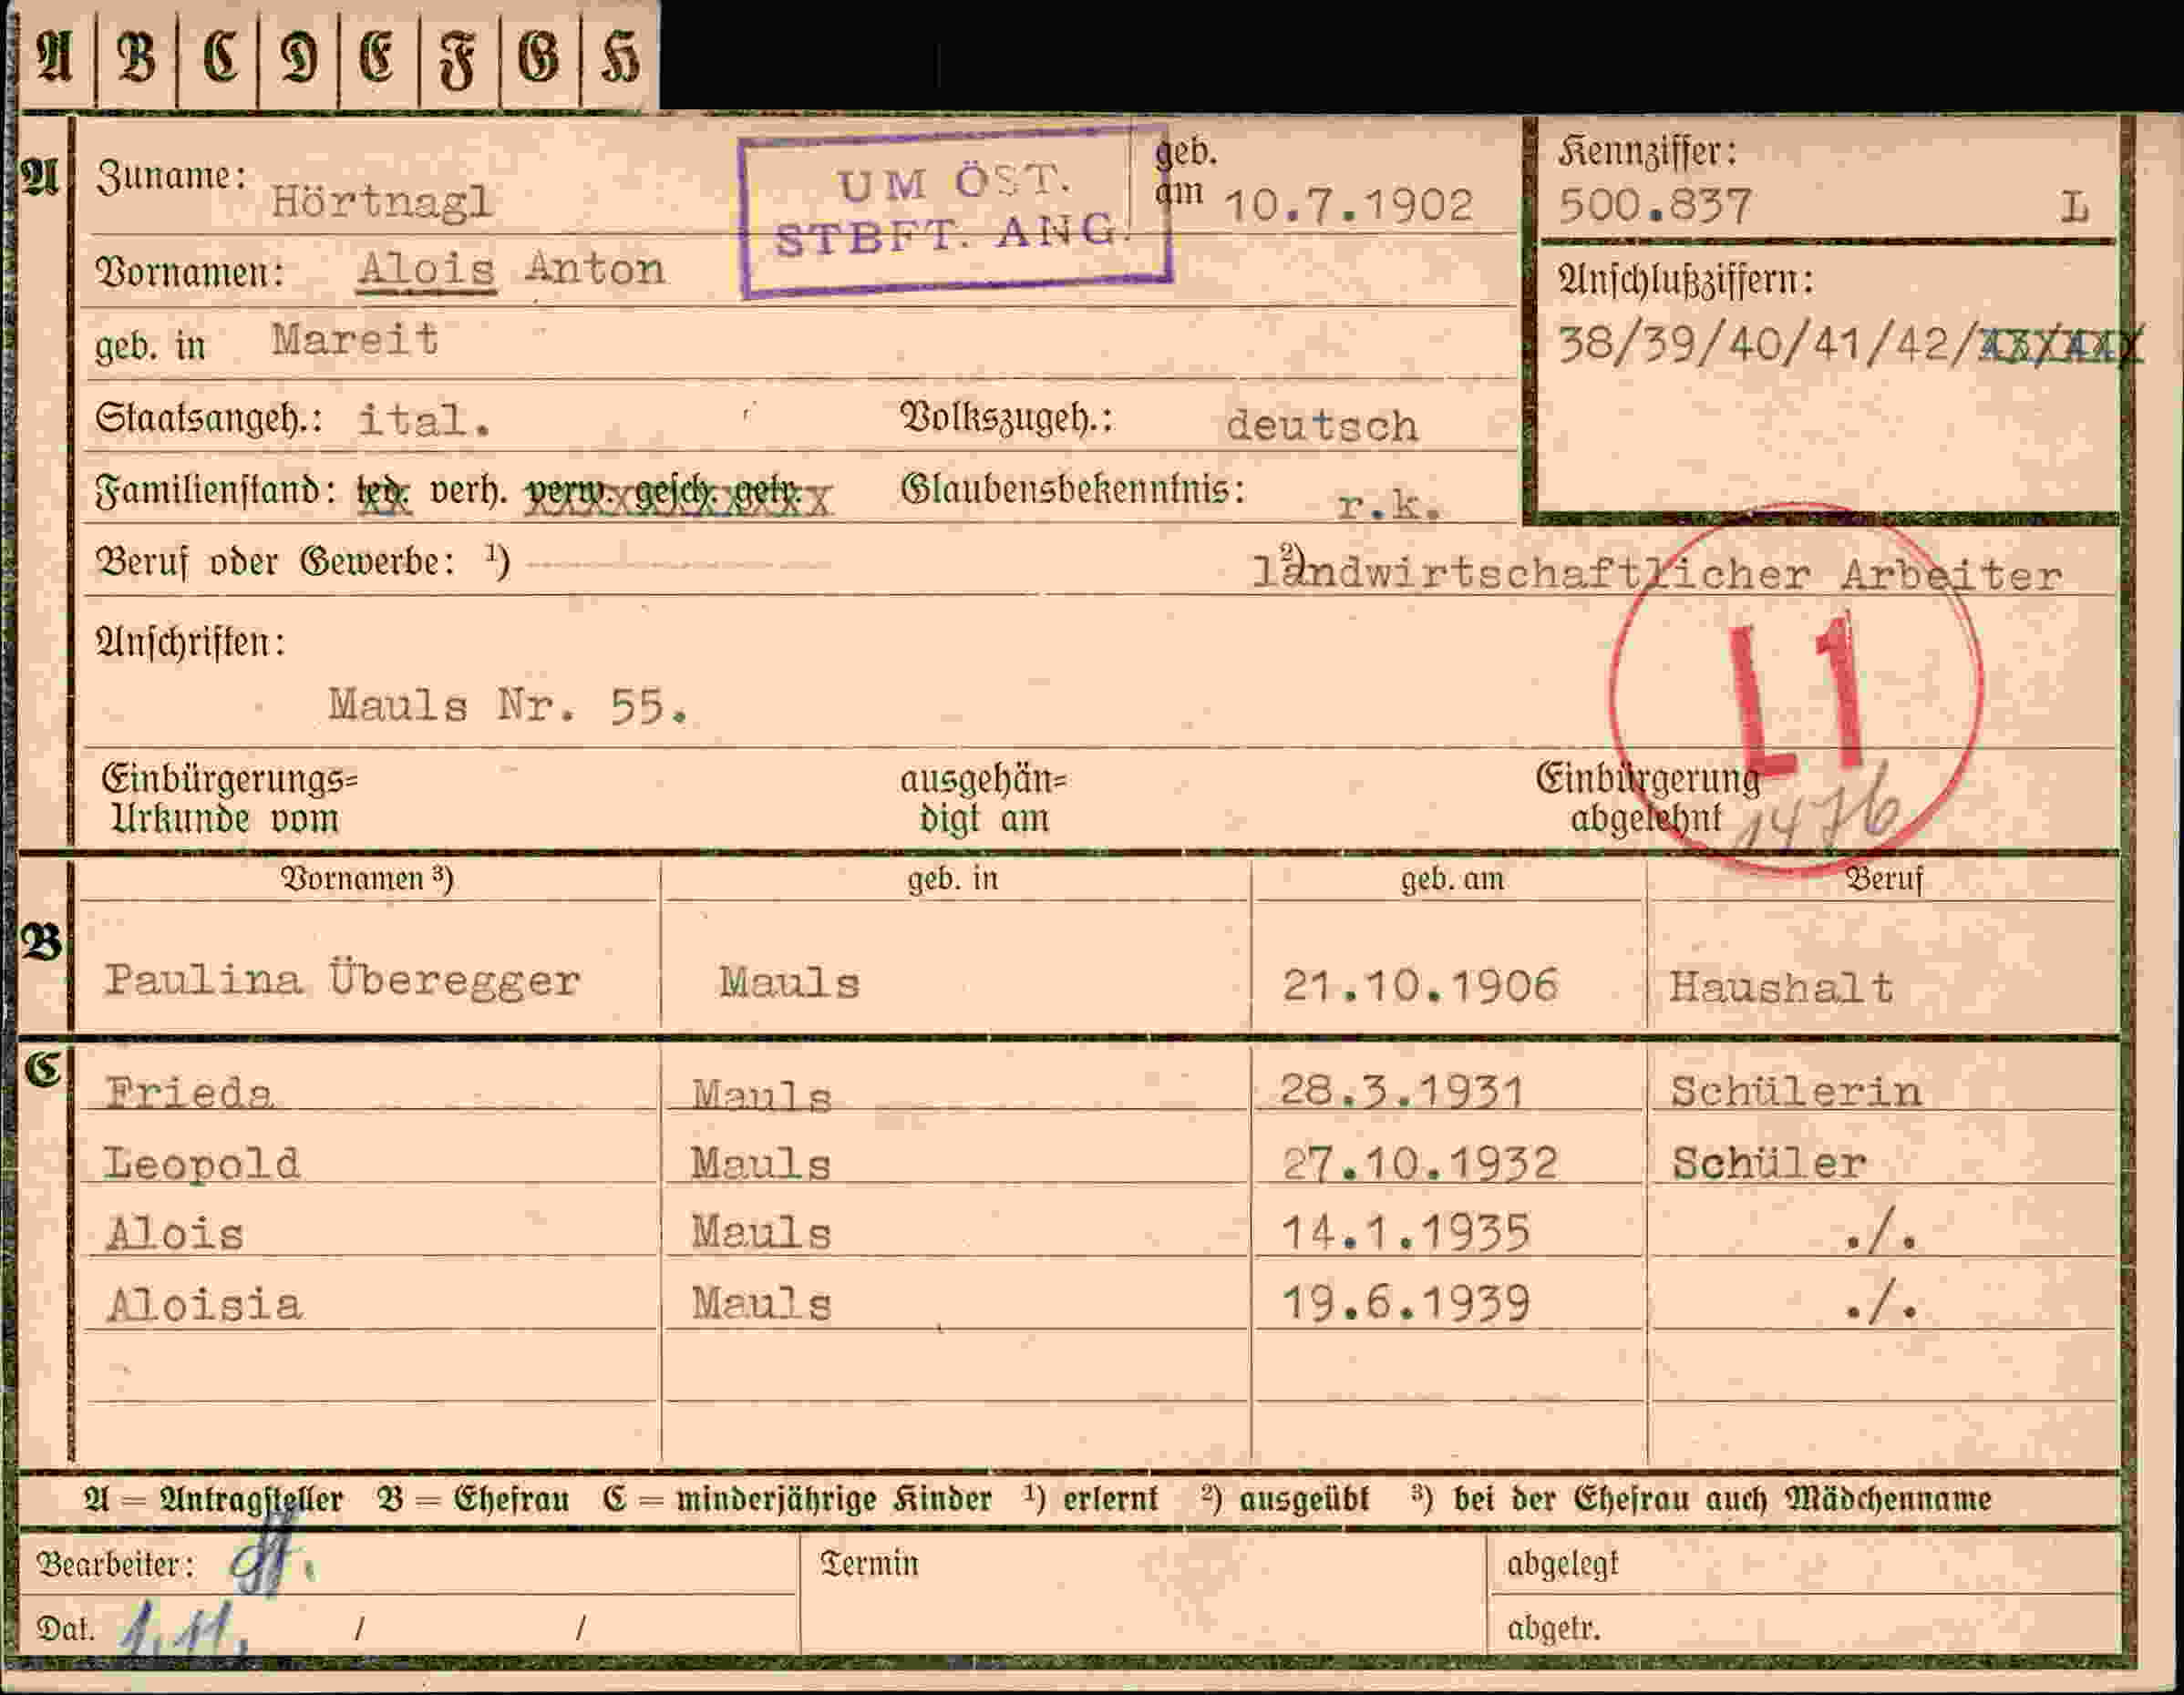 A B C D E F G H
A
Zuname: Hörtnagl
UM ÖST.
STBFT. ANG.
geb.
am 10.7.1902
Kennziffer:
500.837 L
Vornamen: Alois Anton
Anschlußziffern:
38/39/40/41/42/
geb. in Mareit
Staatsangeh.: ital. Volkszugeh.: deutsch
Familienstand: led. verh. verw. gesch. getr. Glaubensbekenntnis: r.k.
Beruf oder Gewerbe: ¹) ²) landwirtschaftlicher Arbeiter
Anschriften:
L1
Mauls Nr. 55.
Einbürgerungs=
Urkunde vom
ausgehän=
digt am
Einbürgerung
abgelehnt 1476
Vornamen ³) geb. in geb. am Beruf
B
Paulina Überegger Mauls 21.10.1906 Haushalt
C
Frieda Mauls 28.3.1931 Schülerin
Leopold Mauls 27.10.1932 Schüler
Alois Mauls 14.1.1935 ./.
Aloisia Mauls 19.6.1939 ./.
A = Antragsteller B = Ehefrau C = minderjährige Kinder ¹) erlernt ²) ausgeübt ³) bei der Ehefrau auch Mädchenname
Bearbeiter: Termin abgelegt
Dat. 1.11. / / abgetr.